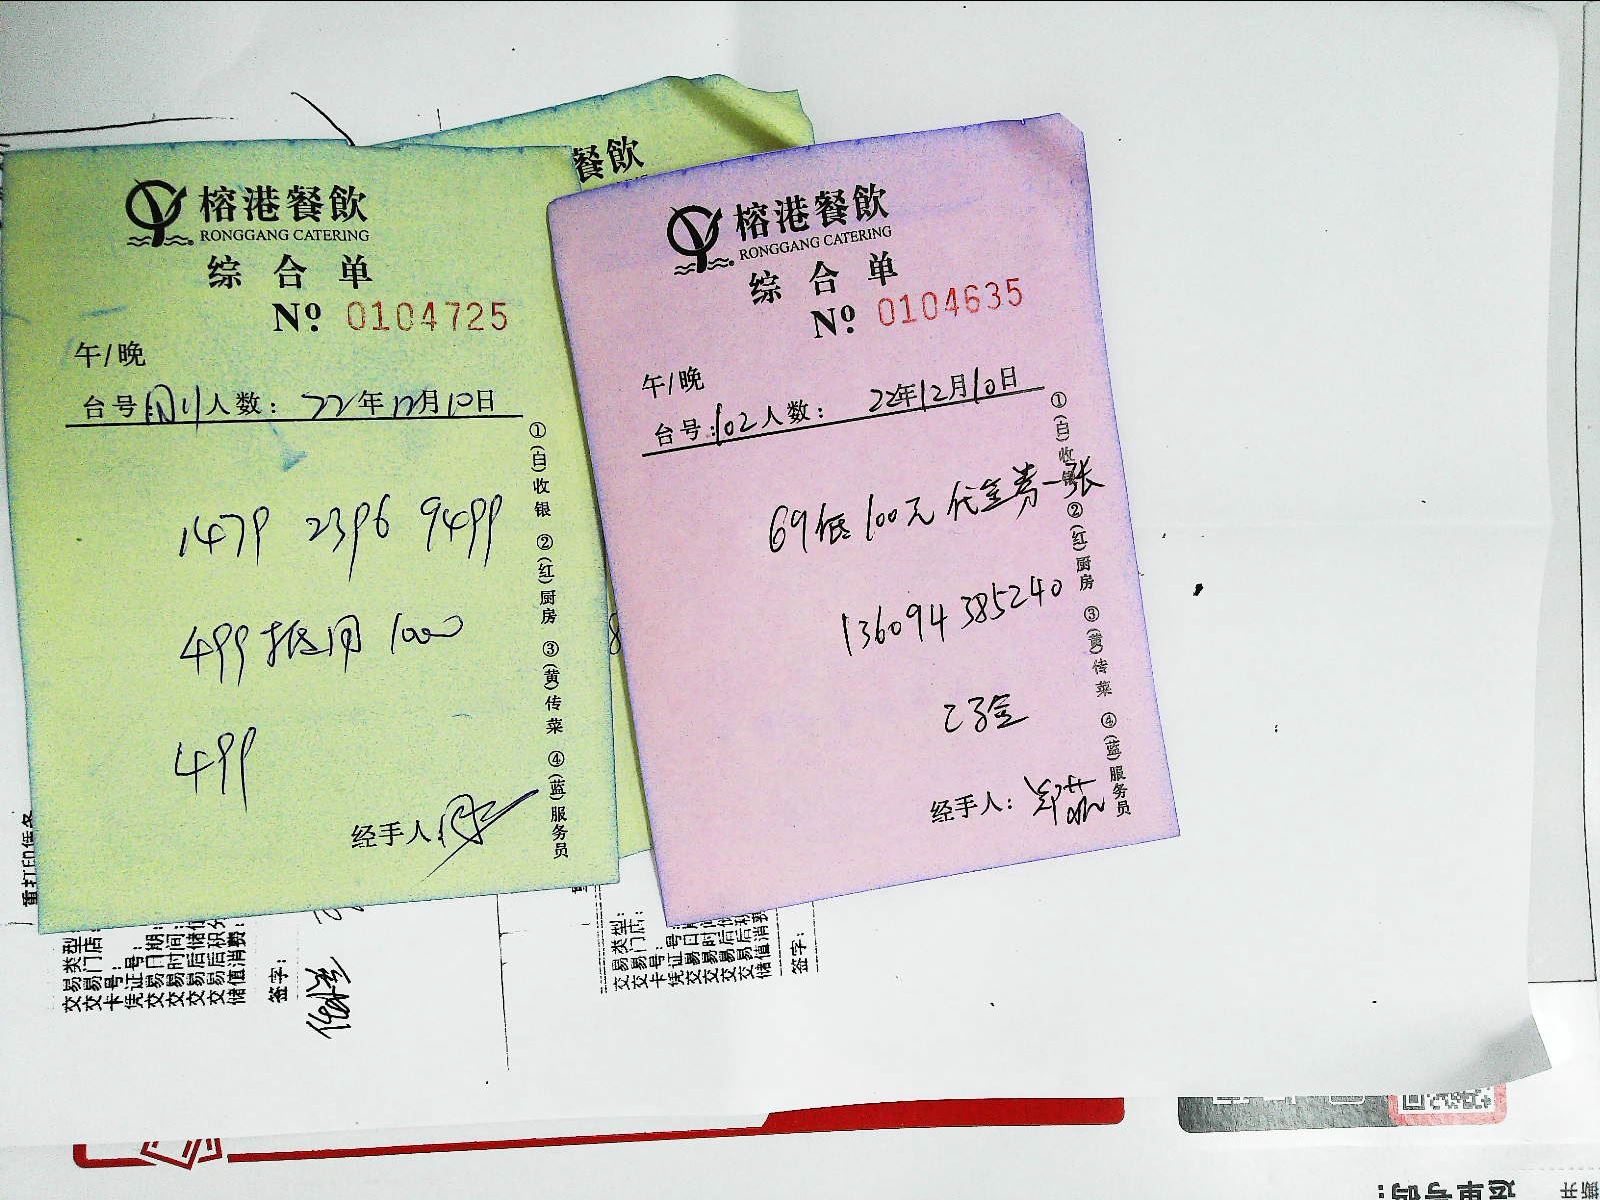 榕港餐飲
RONGGANG CATERING
综合单
№ 0104725
午/晚
台号: 人数: 22年12月10日
1479 2396 9499
499抵用1000
499
经手人:
①(白)收银 ②(红)厨房 ③(黄)传菜 ④(蓝)服务员
餐飲
榕港餐飲
RONGGANG CATERING
综合单
№ 0104635
午/晚
台号:102人数: 22年12月10日
69抵100元代金券一张
136094385240
经手人:
①(白)收银 ②(红)厨房 ③(黄)传菜 ④(蓝)服务员
重打印任务
交易类型:
交易门店:
卡号:
凭证号:
交易日期:
交易时间:
交易后储值
交易后积分
储值消费:
签字:
交易类型:
交易门店:
卡号:
凭证号:
交易日期
交易时间
交易后储
交易后积
储值消费
签字:
运单号码:
撕开